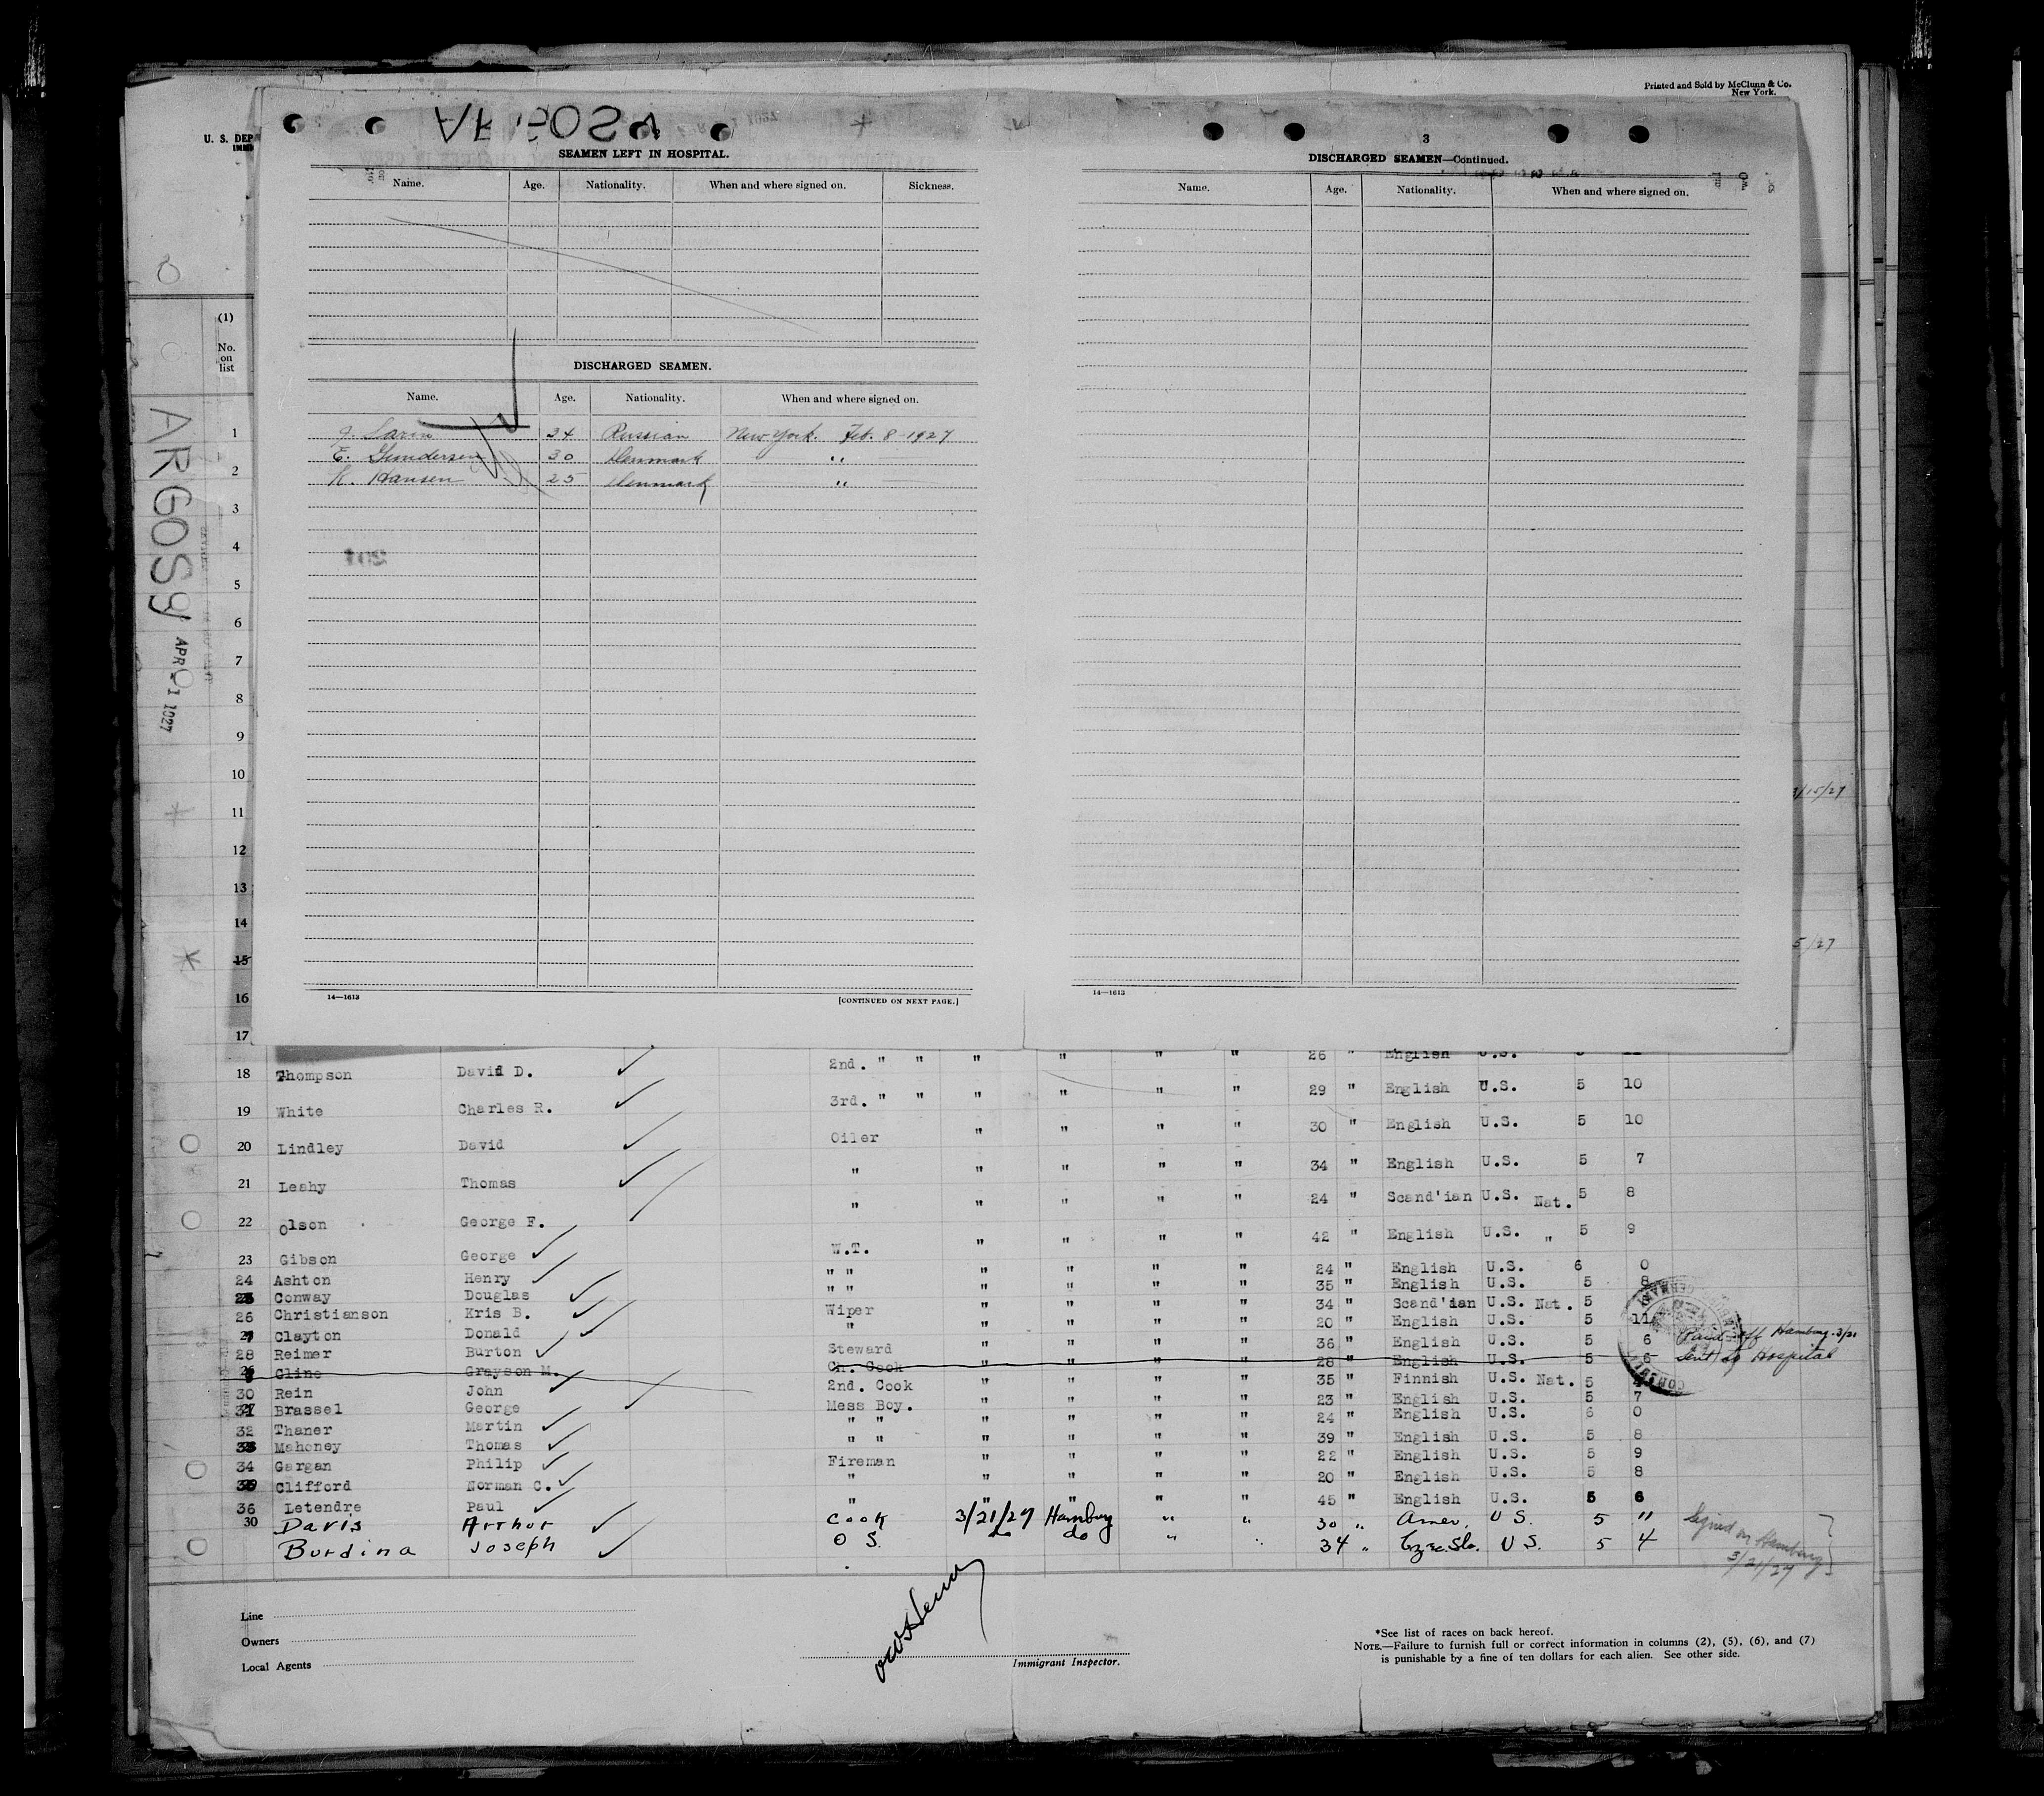 Printed and Sold by McClunn & Co.
New York.
U. S. DEP
ARGOSY
APR 1 1927
(1)
No.
on
list
SEAMEN LEFT IN HOSPITAL.
Name. Age. Nationality. When and where signed on. Sickness.
DISCHARGED SEAMEN.
Name. Age. Nationality. When and where signed on.
J. Larin 34 Russian New York. Feb. 8-1927
E. Gundersen 30 Denmark "
K. Hansen 25 Denmark "
14—1613 [CONTINUED ON NEXT PAGE.]
3
DISCHARGED SEAMEN—Continued.
Name. Age. Nationality. When and where signed on.
14—1613
3/15/27
5/27
1
2
3
4
5
6
7
8
9
10
11
12
13
14
15
16
17
2nd. " " " " " " 26 " English U.S.
18 Thompson David D. 3rd. " " " " " " 29 " English U.S. 5 10
19 White Charles R. Oiler " " " " 30 " English U.S. 5 10
20 Lindley David " " " " " 34 " English U.S. 5 7
21 Leahy Thomas " " " " " 24 " Scand'ian U.S. Nat. 5 8
22 Olson George F. W.T. " " " " 42 " English U.S. " 5 9
23 Gibson George " " " " " " 24 " English U.S. 6 0
24 Ashton Henry " " " " " " 35 " English U.S. 5 8
25 Conway Douglas Wiper " " " " 34 " Scand'ian U.S. Nat. 5
26 Christianson Kris B. " " " " " 20 " English U.S. 5 11
27 Clayton Donald Steward " " " " 36 " English U.S. 5 6 Paid off Hamburg 3/21
28 Reimer Burton Ch. Cook " " " " 28 " English U.S. 5 6 Sent to Hospital
Cline Grayson M. 2nd. Cook " " " " 35 " Finnish U.S. Nat. 5
30 Rein John Mess Boy. " " " " 23 " English U.S. 5 7
31 Brassel George " " " " " " 24 " English U.S. 6 0
32 Thaner Martin " " " " " " 39 " English U.S. 5 8
33 Mahoney Thomas Fireman " " " " 22 " English U.S. 5 9
34 Gargan Philip " " " " " 20 " English U.S. 5 8
Clifford Norman C. " " " " " 45 " English U.S. 5 6
36 Letendre Paul
30 Davis Arthur Cook 3/21/27 Hamburg " " 30 " Amer. U S. 5 11 Signed on Hamburg
Burdina Joseph O S. do do " " 34 " Czec.Slo. U S. 5 4 3/21/27
Line
Owners
Local Agents
Immigrant Inspector.
*See list of races on back hereof.
NOTE.—Failure to furnish full or correct information in columns (2), (5), (6), and (7)
is punishable by a fine of ten dollars for each alien. See other side.